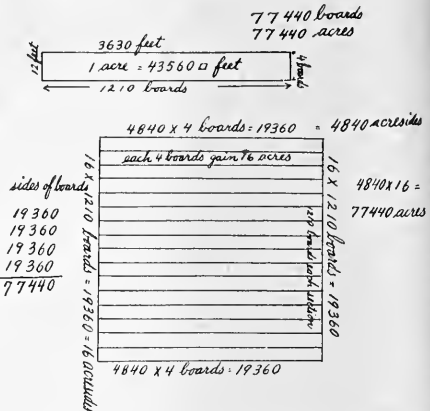 77440 boards
77440 acres
3630 feet
12 feet
1 acre = 43560 □ feet
4 boards
1210 boards
4840 x 4 boards = 19360 = 4840 acresides
each 4 boards gain 16 acres
sides of boards
19360
19360
19360
19360
77440
16 x 1210 boards = 19360 = 16 acresides
1210 boards each section
16 x 1210 boards = 19360
4840x16 =
77440 acres
4840 x 4 boards = 19360